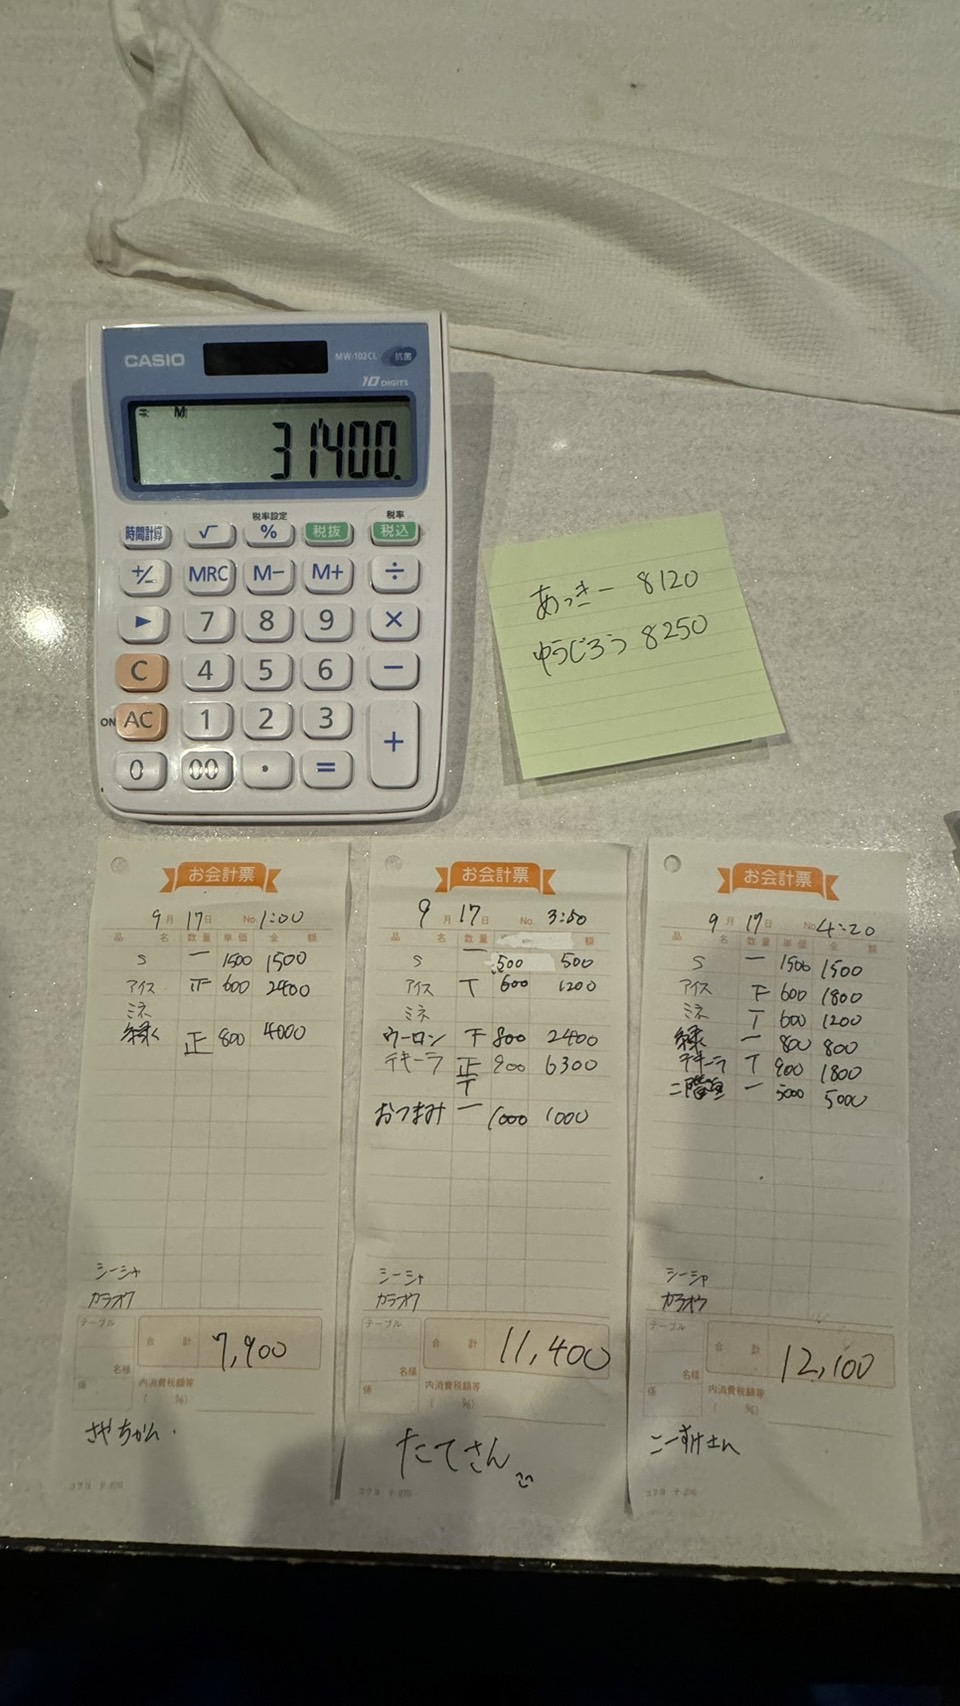 CASIO
MW-102CL 抗菌
10 DIGITS
= M
31'400.
税率設定 税率
時間計算 √ % 税抜 税込
+/- MRC M- M+ ÷
▶ 7 8 9 ×
C 4 5 6 −
ON AC 1 2 3 +
0 00 • =
あっきー 8120
ゆうじろう 8250
お会計票
9月17日 No. 1:00
品名 数量 単価 金額
S 一 1500 1500
アイス 正 600 2400
ミネ
緑 正 800 4000
シーシャ
カラオケ
テーブル
合計 7,900
名様
係
内消費税額等
( %)
さやちゃん.
お会計票
9月17日 No. 3:50
品名 数量 額
S 一 500 500
アイス T 600 1200
ミネ
ウーロン 下 800 2400
テキーラ 正T 900 6300
おつまみ 一 1000 1000
シーシャ
カラオケ
テーブル
合計 11,400
名様
係
内消費税額等
( %)
たてさん
お会計票
9月17日 No 4:20
品名 数量 単価 金額
S 一 1500 1500
アイス 下 600 1800
ミネ T 600 1200
緑 一 800 800
テキーラ T 900 1800
二階堂 一 5000 5000
シーシャ
カラオケ
テーブル
合計 12,100
名様
係
内消費税額等
( %)
こーすけさん